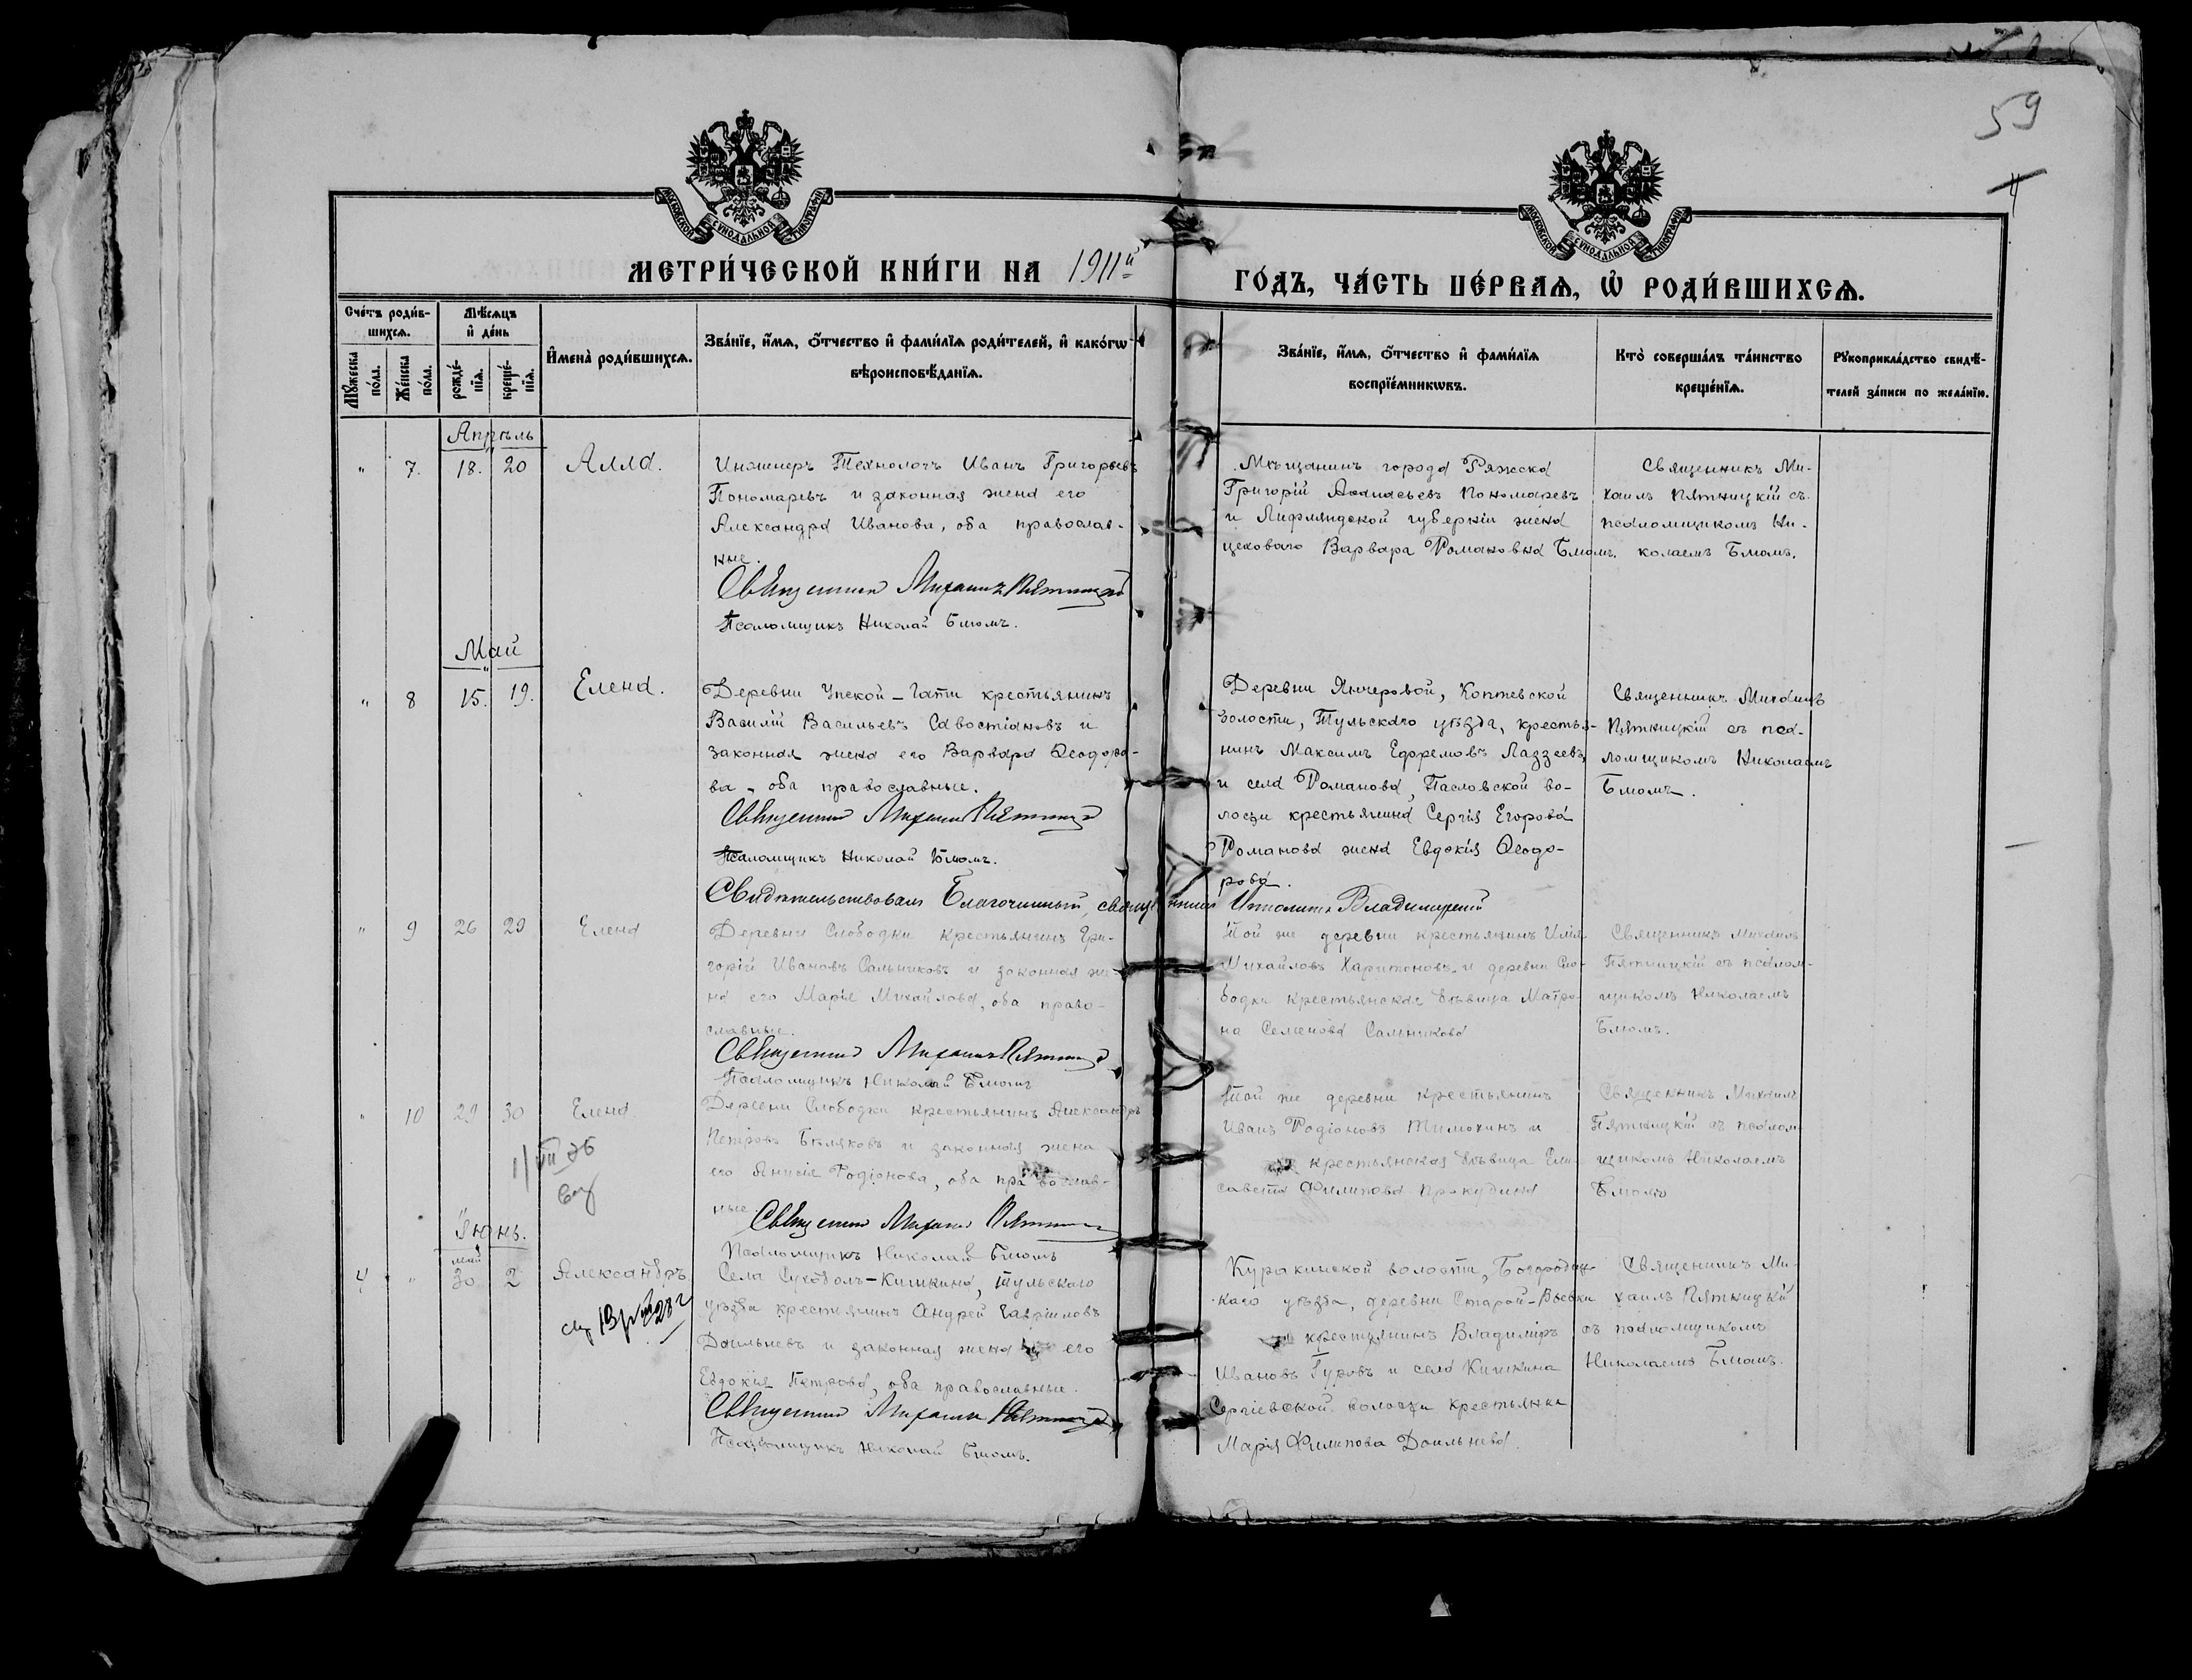 59
4
МОСКОВСКОЙ СѴНОДАЛЬНОЙ ТИПОГРАФІИ
МОСКОВСКОЙ СѴНОДАЛЬНОЙ ТИПОГРАФІИ
МЕТРИ́ЧЕСКОЙ КНИ́ГИ НА 1911й
ГО́ДЪ, ЧА́СТЬ ПЕ́РВАѦ, Ѡ҆ РОДИ́ВШИХСѦ.
Сче́тъ роди́в-
шихсѧ.
Мѣ́сѧцъ
и҆ де́нь
Мꙋ́жеска
по́ла.
Же́нска
по́ла.
рожде́-
нїѧ.
креще́-
нїѧ.
И҆мена̀ роди́вшихсѧ.
Зва́нїе, и҆́мѧ, ѻ҆́тчество и҆ фами́лїѧ роди́телей, и҆ како́гѡ
вѣроисповѣ́данїѧ.
Зва́нїе, и҆́мѧ, ѻ҆́тчество и҆ фами́лїѧ
воспрїе́мникѡвъ.
Кто̀ соверша́лъ та́инство
креще́нїѧ.
Рꙋкоприкла́дство свидѣ́-
телей за́писи по жела́нїю.
Апрѣль
" 7. 18. 20 Алла.
Инженеръ Технологъ Иванъ Григорьевъ
Пономаревъ и законная жена его
Александра Иванова, оба православ-
ные.
Священникъ Михаилъ Пятницкій
Псаломщикъ Николай Блюмъ.
Мѣщанинъ города Ряжска
Григорій Аѳанасьевъ Пономаревъ
и Лифляндской губерніи жена
цеховаго Варвара Романовна Блюмъ.
Священникъ Ми-
хаилъ Пятницкій съ
псаломщикомъ Ни-
колаемъ Блюмъ.
Май
" 8 15. 19. Елена.
Деревни Упской-Гати крестьянинъ
Василій Васильевъ Савостіановъ и
законная жена его Варвара Ѳеодоро-
ва, оба православные.
Священникъ Михаилъ Пятницкій
Псаломщикъ Николай Блюмъ.
Деревни Янчеровой, Коптевской
волости, Тульскаго уѣзда, крестья-
нинъ Максимъ Ефремовъ Лаззеевъ
и села Романова, Пасловской во-
лости крестьянина Сергія Егорова
Романова жена Евдокія Ѳеодо-
рова.
Священникъ Михаилъ
Пятницкій съ пса-
ломщикомъ Николаемъ
Блюмъ.
Свидѣтельствовалъ Благочинный, священникъ Ипполитъ Владимірскій
" 9 26 29 Елена
Деревни Слободки крестьянинъ Гри-
горій Ивановъ Сальниковъ и законная же-
на его Марія Михайлова, оба право-
славные.
Священникъ Михаилъ Пятницкій
Псаломщикъ Николай Блюмъ
Той же деревни крестьянинъ Илія
Михайловъ Харитоновъ и деревни Сло-
бодки крестьянская дѣвица Матро-
на Семенова Сальникова
Священникъ Михаилъ
Пятницкій съ псалом-
щикомъ Николаемъ
Блюмъ.
" 10 29 30 Елена
Деревни Слободки крестьянинъ Александръ
Петровъ Бѣляковъ и законная жена
его Анисія Родіонова, оба православ-
ные.
Священникъ Михаилъ Пятницкій
Псаломщикъ Николай Блюмъ
Той же деревни крестьянинъ
Иванъ Родіоновъ Тимохинъ и
крестьянская дѣвица Ели-
савета Филипова Прокудина
Священникъ Михаилъ
Пятницкій съ псалом-
щикомъ Николаемъ
Блюмъ
Іюнь.
май
4 " 30 2 Александръ
Села Суходолъ-Кишкина, Тульскаго
уѣзда крестьянинъ Андрей Гавріиловъ
Доильневъ и законная жена его
Евдокія Петрова, оба православные.
Священникъ Михаилъ Пятницкій
Псаломщикъ Николай Блюмъ.
Куракинской волости, Богородиц-
каго уѣзда, деревни Старой-Вьевки
крестьянинъ Владиміръ
Ивановъ Гуровъ и села Кишкина
Сергіевской волости крестьянка
Марія Филипова Доильнева.
Священникъ Ми-
хаилъ Пятницкій
съ псаломщикомъ
Николаемъ Блюмъ.